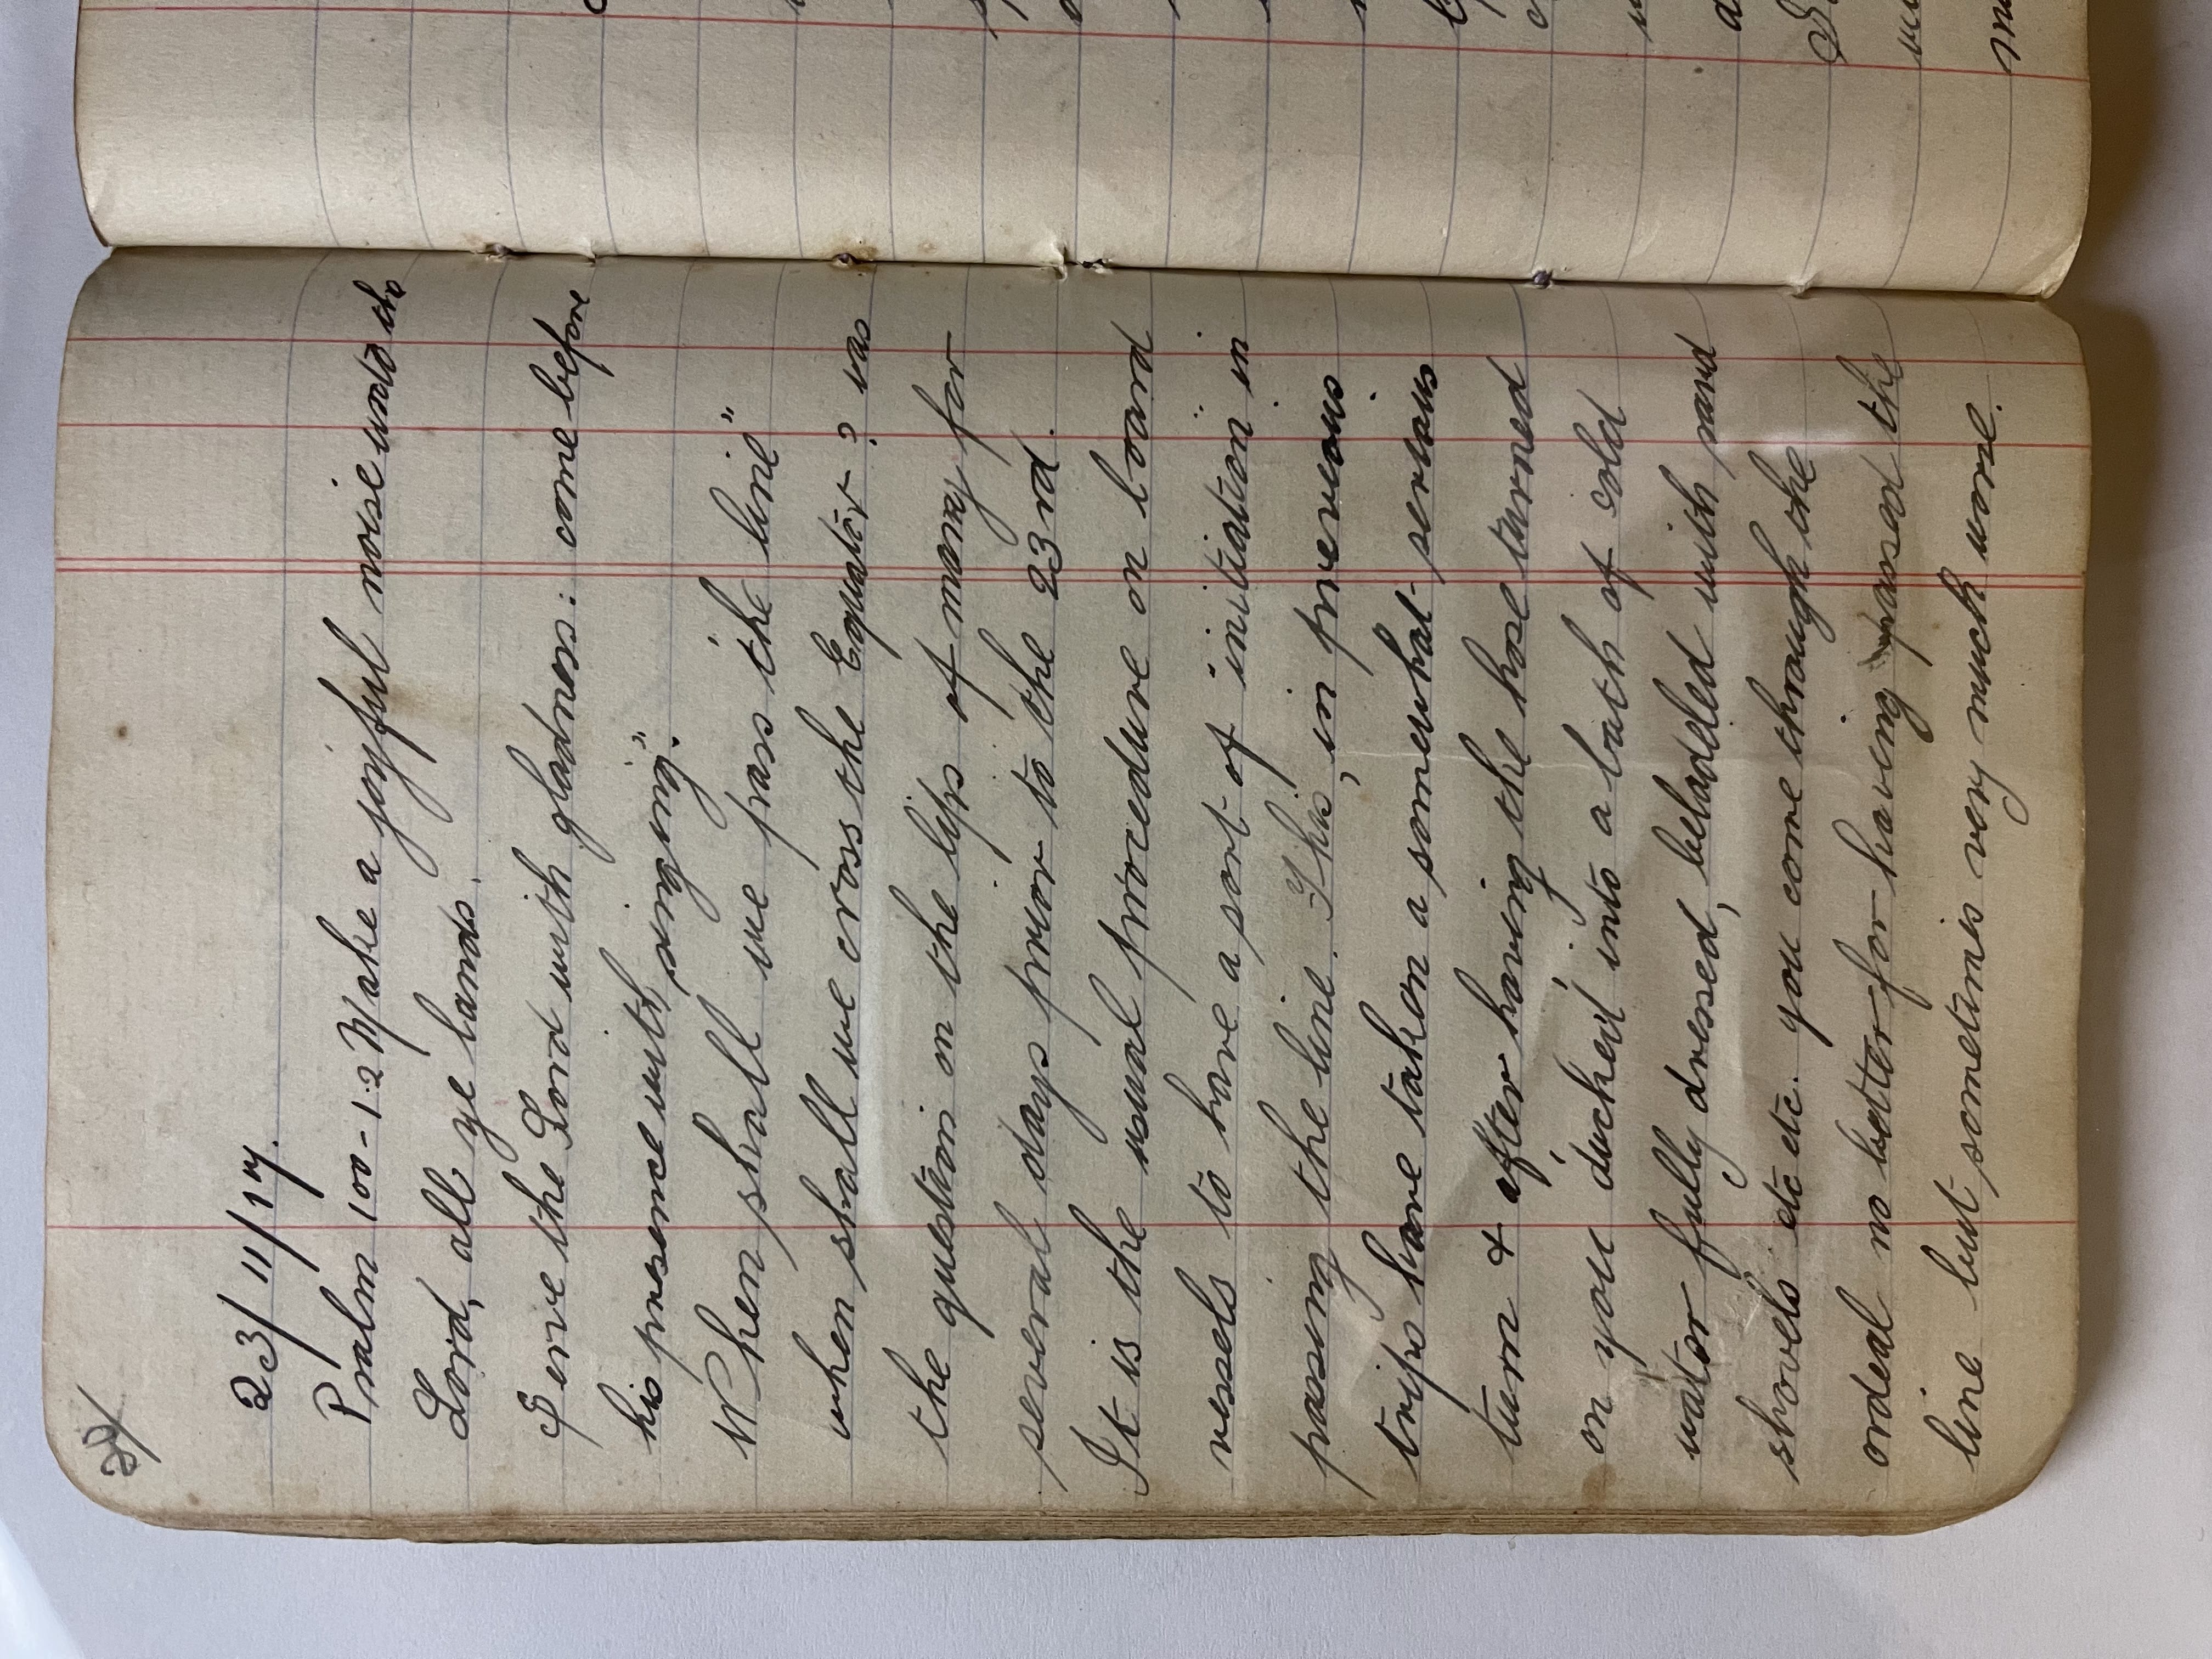 23/11/17.
Psalm 100-1.2 Make a joyful noise unto the
Lord, all ye lands.
Serve the Lord with gladness: come before
his presence with singing".
When shall we pass the line"
when shall we cross the Equator? was
the question on the lips of many for
several days prior to the 23rd.
It is the usual procedure on board
vessels to have a sort of initiation in
passing the line. This, in prevous
trips have taken a somewhat serious
turn & after having the hose turned
on you ducked into a bath of cold
water fully dressed, beladled with sand
shovels etc etc. you come through the
ordeal no better for having passed the
line but sometimes very much worse.